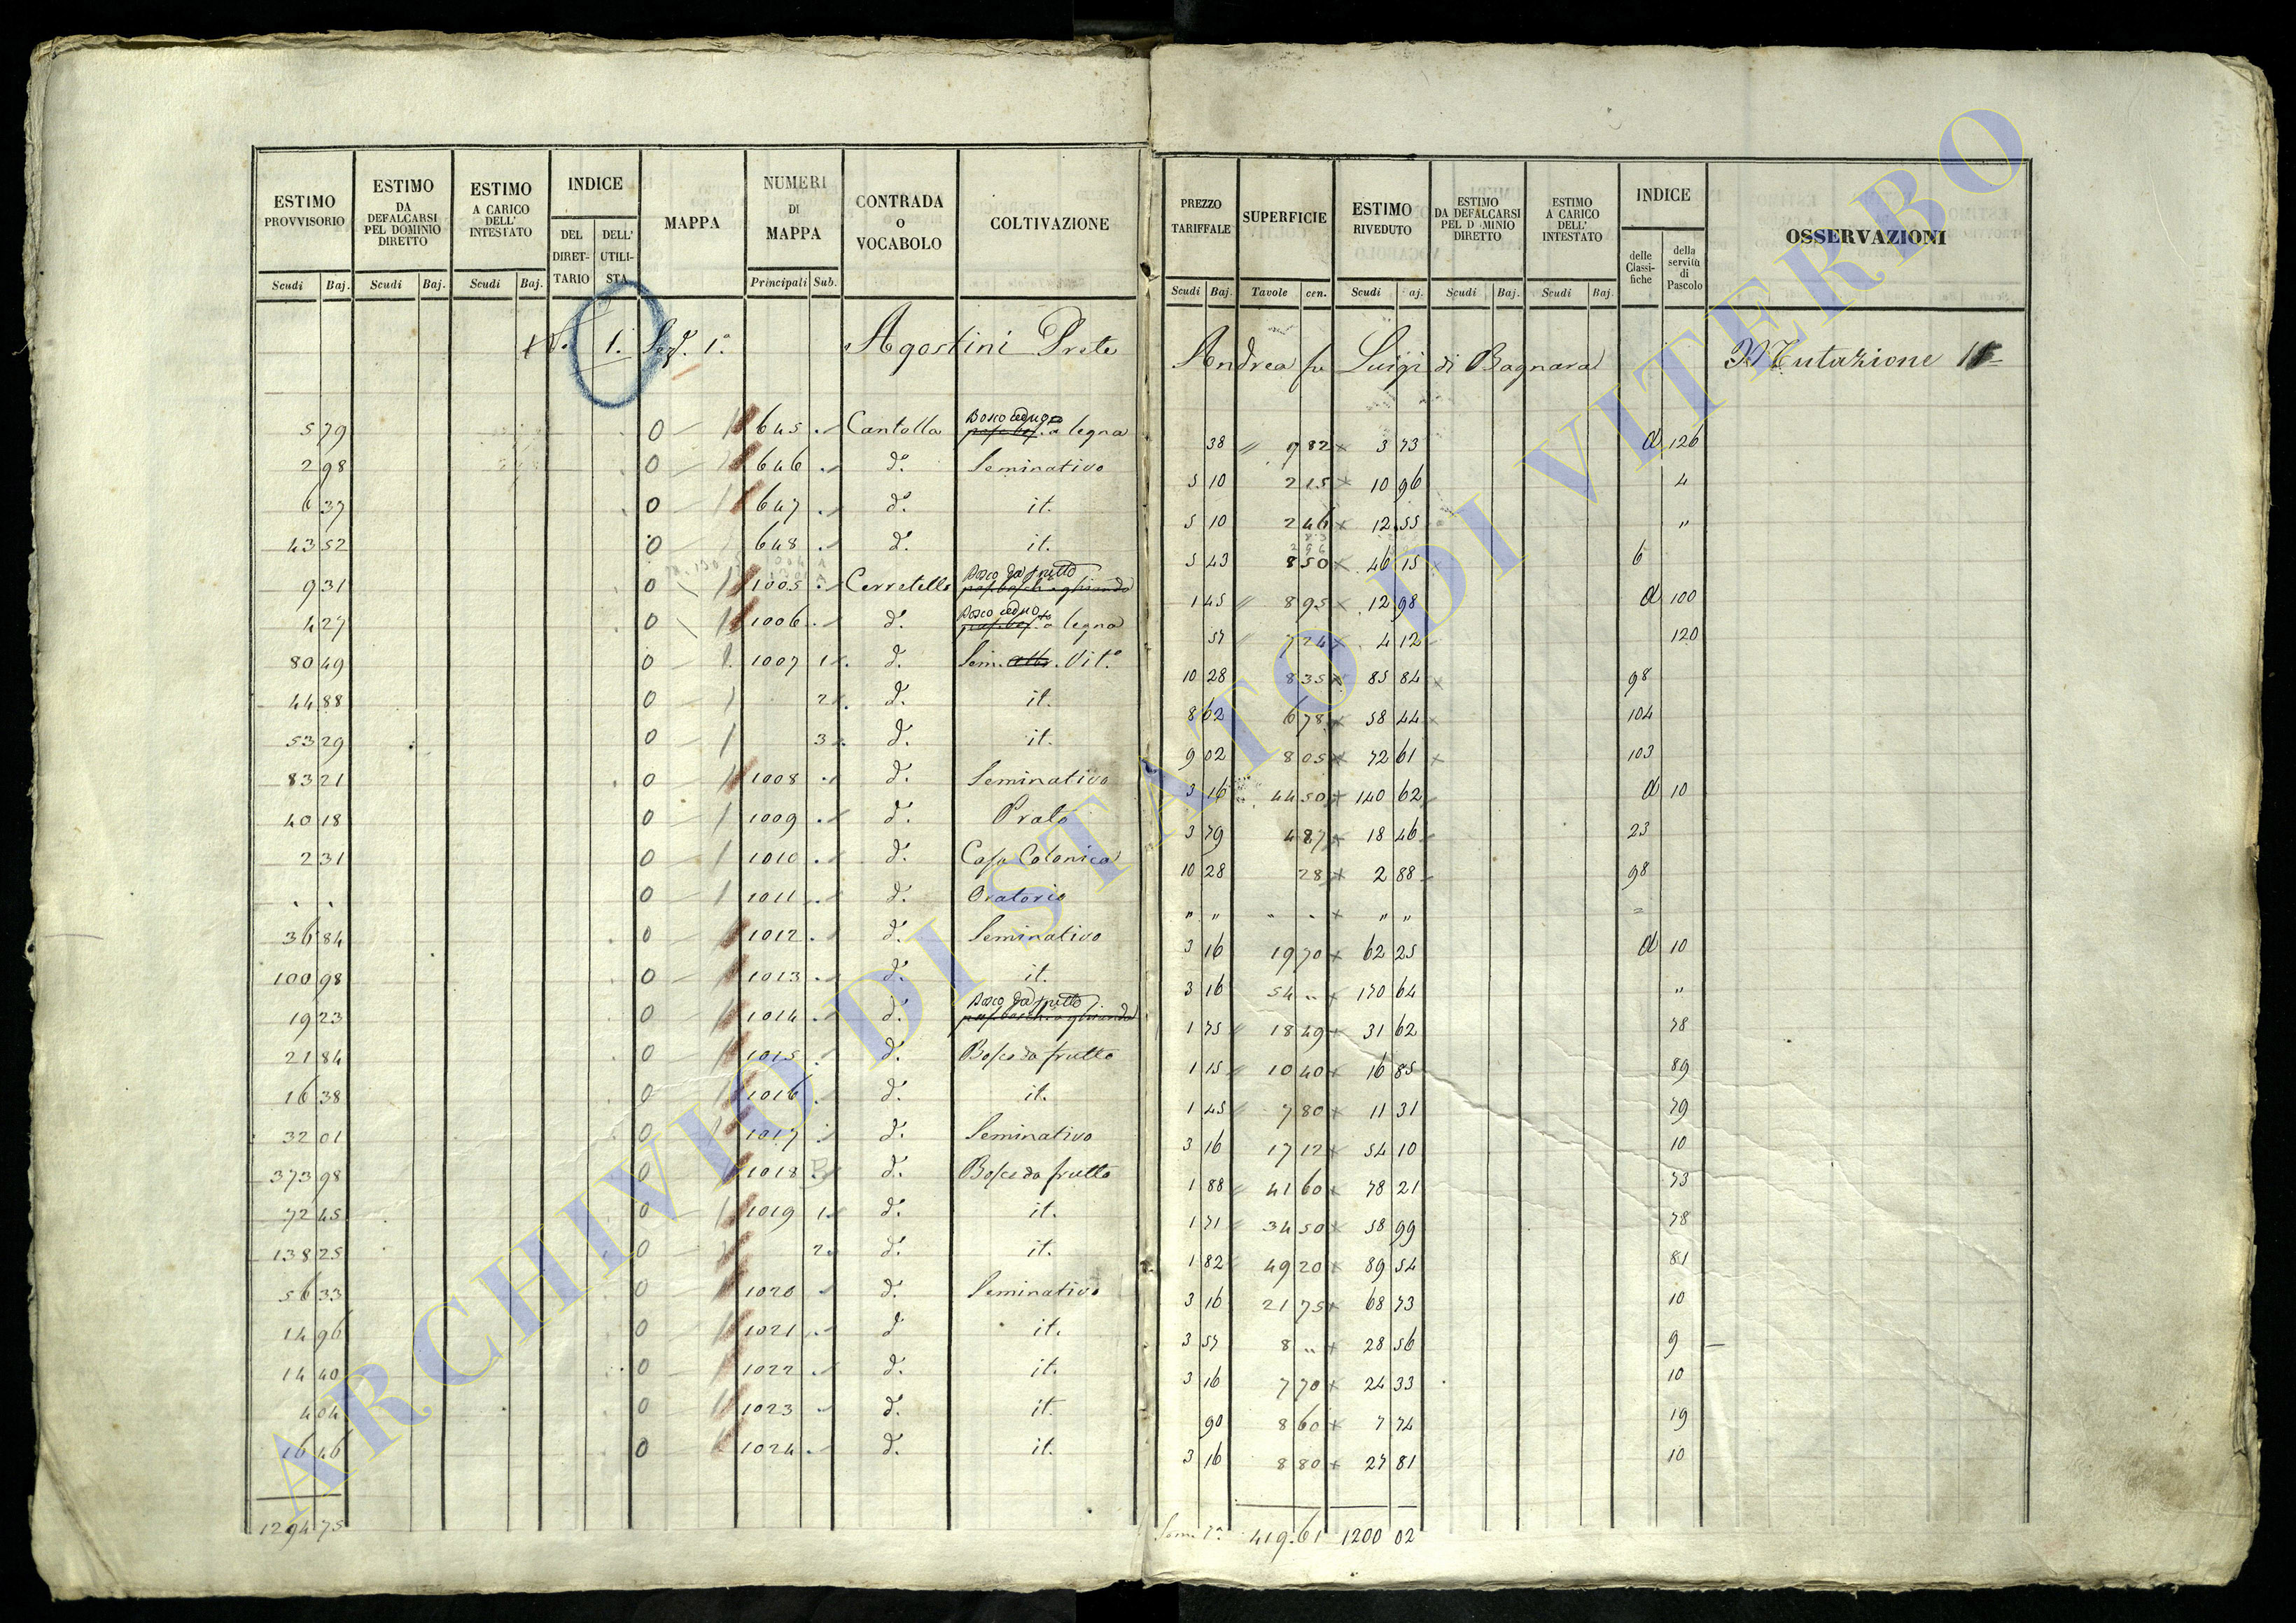 ESTIMO PROVVISORIO | ESTIMO DA DEFALCARSI PEL DOMINIO DIRETTO | ESTIMO A CARICO DELL' INTESTATO | INDICE | MAPPA | NUMERI DI MAPPA | CONTRADA o VOCABOLO | COLTIVAZIONE
DEL DIRET-TARIO | DELL' UTILI-STA
Scudi | Baj. | Scudi | Baj. | Scudi | Baj. | Principali | Sub.
1. Sez. 1.a Agostini Prete
5 79 | 0 1 | 645 | Cantalla | Bosco ceduo a legna
2 98 | 0 1 | 646 | d.o | Seminativo
6 37 | 0 1 | 647 | d.o | it.
43 52 | 0 | 648 | d.o | it.
9 31 | 0 1 | 1005 | Cerretello | Bosco da frutto
4 27 | 0 1 | 1006 | d.o | Bosco ceduo a legna
80 49 | 0 1 | 1007 | 1 | d.o | Sem. Vit.o
44 88 | 0 1 | 2 | d.o | it.
53 29 | 0 1 | 3 | d.o | it.
83 21 | 0 1 | 1008 | d.o | Seminativo
40 18 | 0 1 | 1009 | d.o | Prato
2 31 | 0 1 | 1010 | d.o | Casa Colonica
. . | 0 1 | 1011 | d.o | Oratorio
36 84 | 0 1 | 1012 | d.o | Seminativo
100 98 | 0 1 | 1013 | d.o | it.
19 23 | 0 1 | 1014 | d.o | Bosco da frutto
21 84 | 0 1 | 1015 | d.o | Bosco da frutto
16 38 | 0 1 | 1016 | d.o | it.
32 01 | 0 1 | 1017 | d.o | Seminativo
373 98 | 0 1 | 1018 | d.o | Bosco da frutto
72 45 | 0 1 | 1019 | 1 | d.o | it.
138 25 | 0 1 | 2 | d.o | it.
56 33 | 0 1 | 1020 | d.o | Seminativo
14 96 | 0 1 | 1021 | d.o | it.
14 40 | 0 1 | 1022 | d.o | it.
4 04 | 0 1 | 1023 | d.o | it.
16 46 | 0 1 | 1024 | d.o | it.
1294 75
PREZZO TARIFFALE | SUPERFICIE | ESTIMO RIVEDUTO | ESTIMO DA DEFALCARSI PEL DOMINIO DIRETTO | ESTIMO A CARICO DELL' INTESTATO | INDICE | OSSERVAZIONI
delle Classi-fiche | della servitù di Pascolo
Scudi | Baj. | Tavole | cen. | Scudi | aj. | Scudi | Baj. | Scudi | Baj.
Andrea fu Luigi di Bagnara Mutazione
38 | 9 82 | 3 73 | a | 126
5 10 | 2 15 | 10 96 | 4
5 10 | 2 46 | 12 55 | "
5 43 | 8 50 | 46 15 | 6
1 45 | 8 95 | 12 98 | a | 100
57 | 7 24 | 4 12 | 120
10 28 | 8 35 | 85 84 | 98
8 62 | 6 78 | 58 44 | 104
9 02 | 8 05 | 72 61 | 103
3 16 | 44 50 | 140 62 | a | 10
3 79 | 4 87 | 18 46 | 23
10 28 | 28 | 2 88 | 98
" " | " . | " "
3 16 | 19 70 | 62 25 | a | 10
3 16 | 54 " | 170 64 | "
1 75 | 18 49 | 31 62 | 78
1 15 | 10 40 | 16 85 | 89
1 45 | 7 80 | 11 31 | 79
3 16 | 17 12 | 54 10 | 10
1 88 | 41 60 | 78 21 | 73
1 71 | 34 50 | 58 99 | 78
1 82 | 49 20 | 89 54 | 81
3 16 | 21 75 | 68 73 | 10
3 57 | 8 " | 28 56 | 9
3 16 | 7 70 | 24 33 | 10
90 | 8 60 | 7 74 | 19
3 16 | 8 80 | 27 81 | 10
419.61 | 1200 02
ARCHIVIO DI STATO DI VITERBO